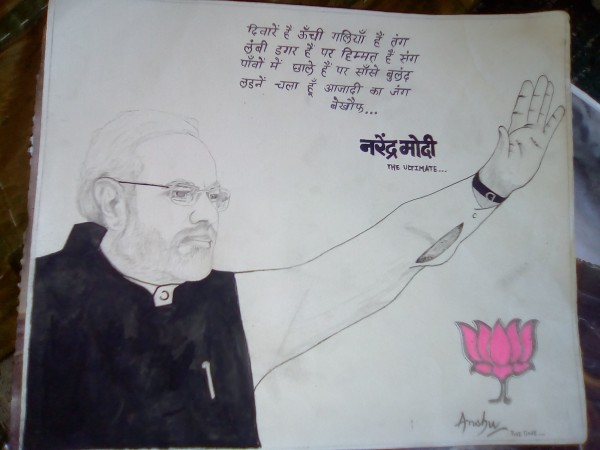 दिवारें हैं ऊँची गलियाँ हैं तंग
लंबी डगर हैं पर हिम्मत हैं संग
पाँवों में छाले हैं पर साँसे बुलंद
लड़नें चला हूँ आजादी का जंग
बेखौफ...
नरेंद्र मोदी
THE ULTIMATE...
Anshu